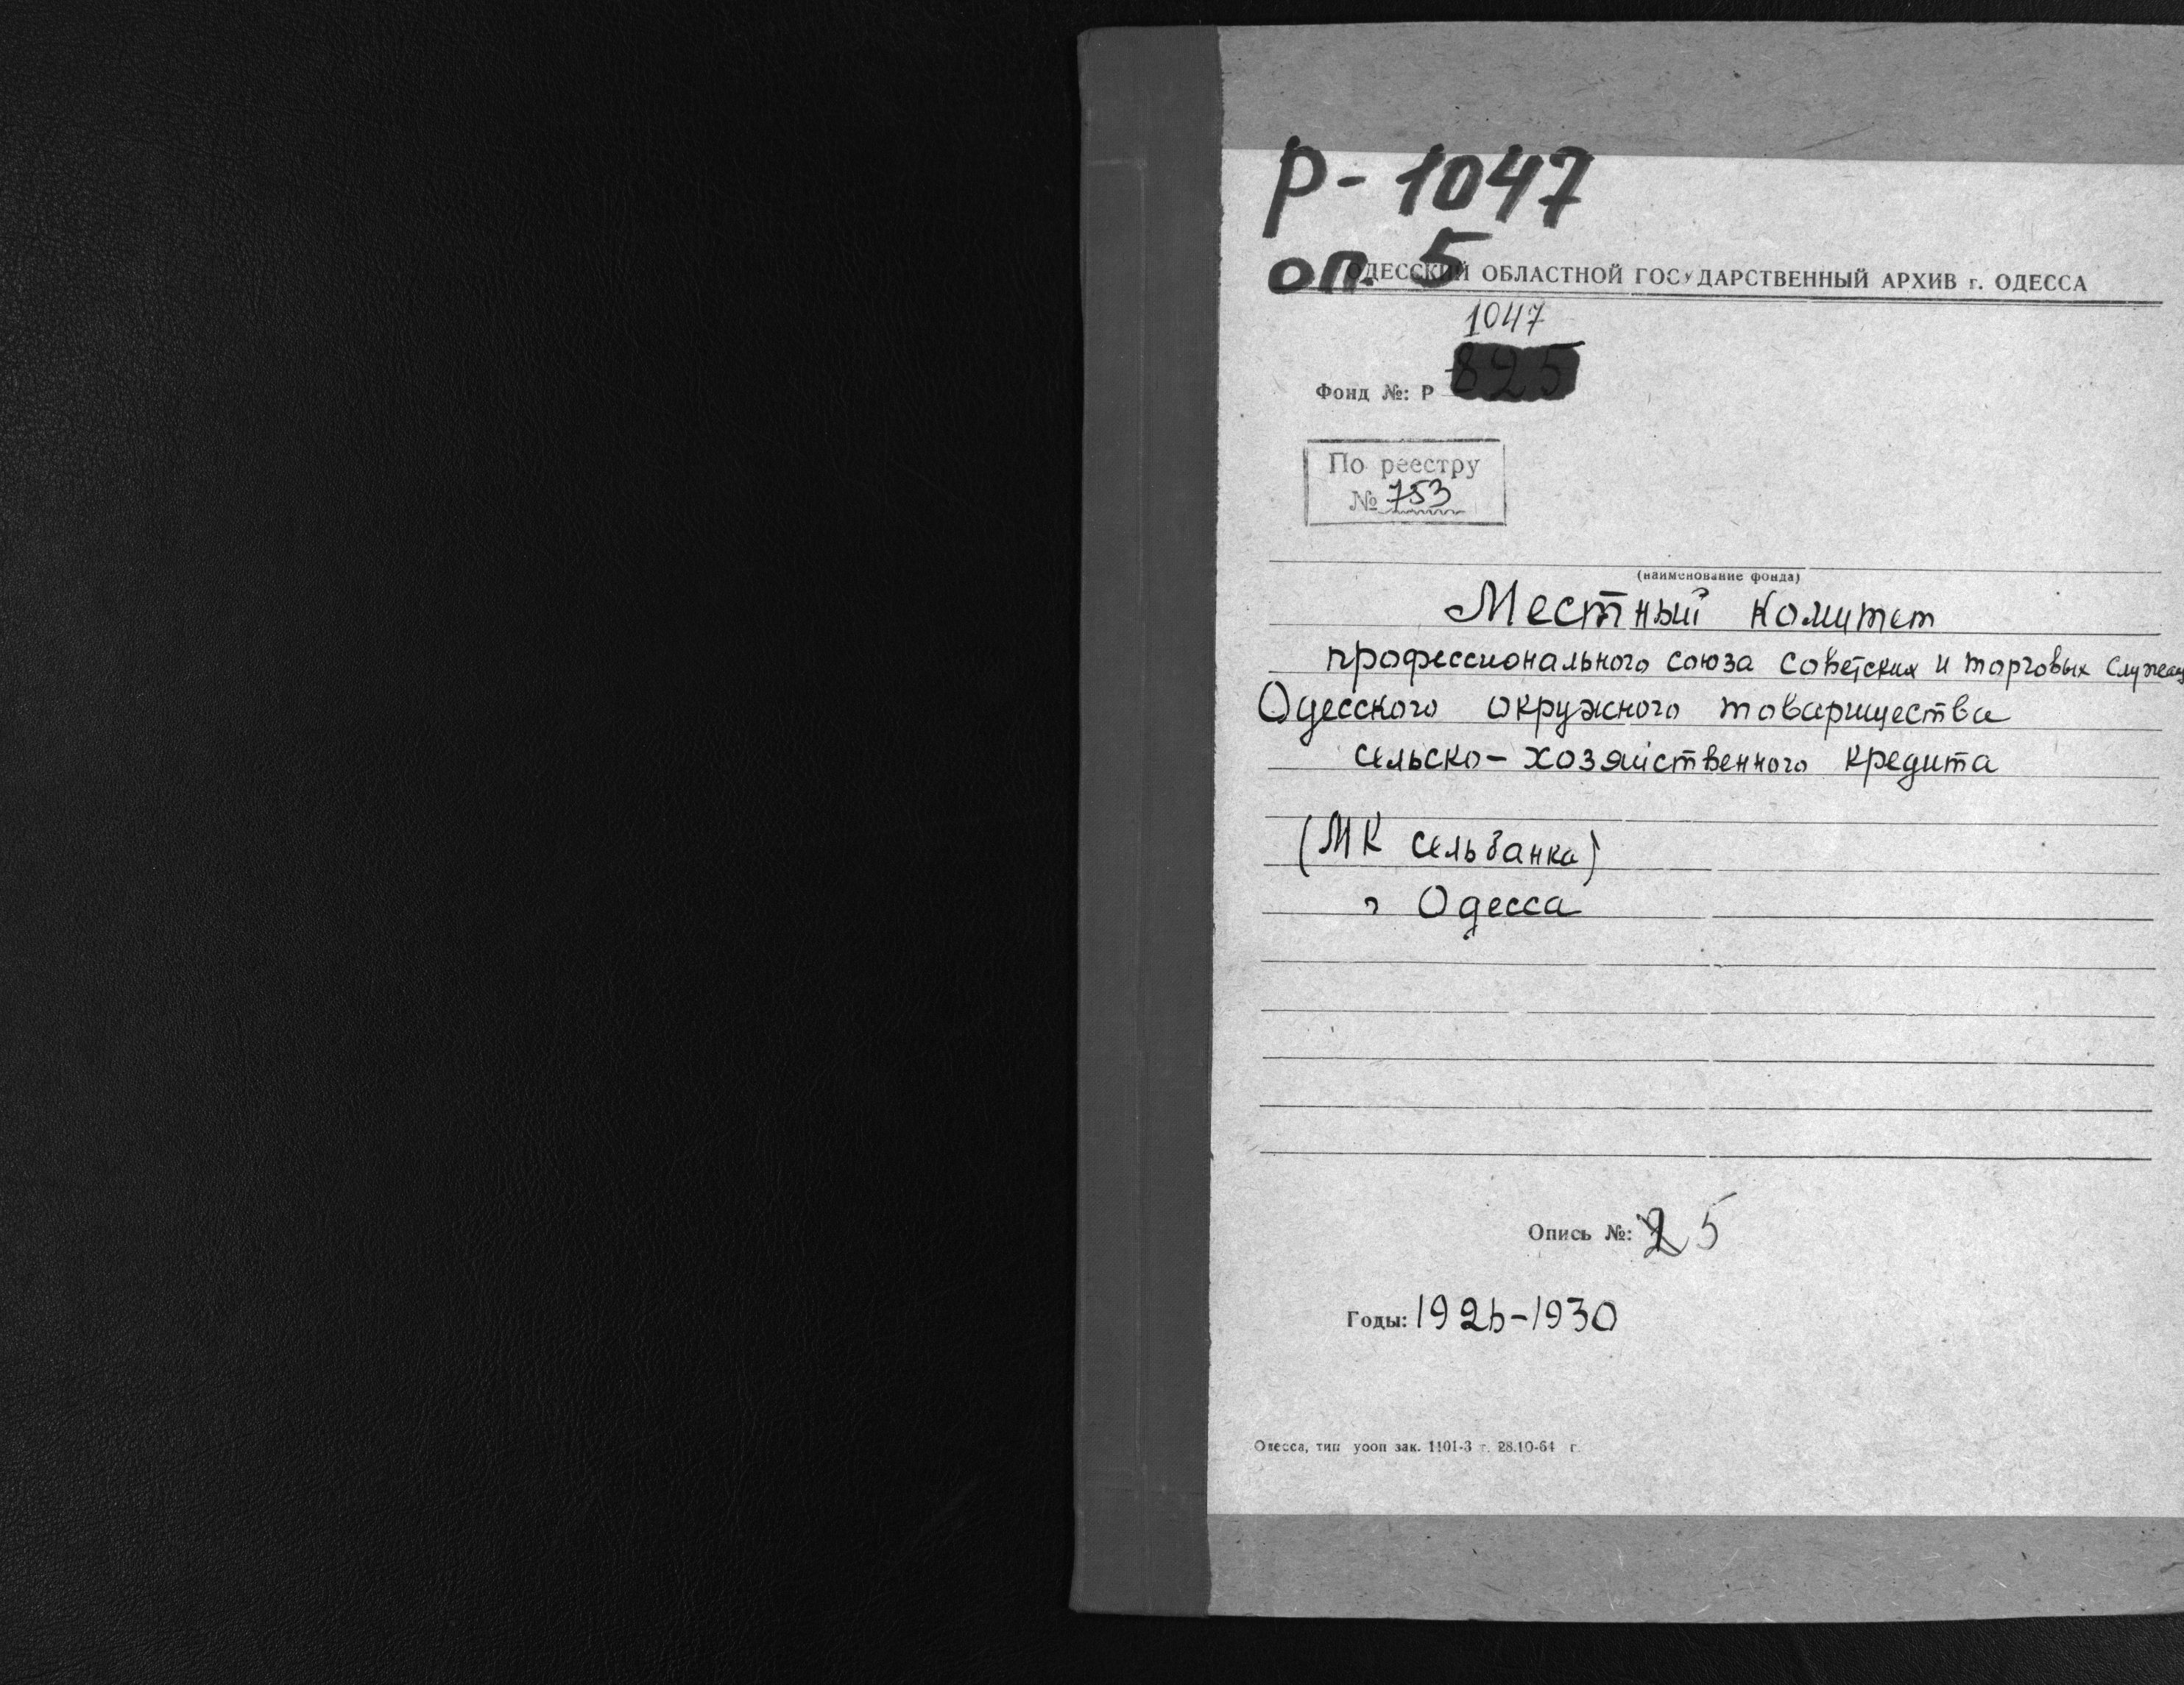 Р-1047
оп. 5
ОДЕССКИЙ ОБЛАСТНОЙ ГОСУДАРСТВЕННЫЙ АРХИВ г. ОДЕССА
1047
Фонд №: Р-825
По реестру
№ 753
(наименование фонда)
Местный комитет
профессионального союза советских и торговых служащ
Одесского окружного товарищества
сельско-хозяйственного кредита
(МК сельбанка)
г Одесса
Опись №: 2 5
Годы: 1926-1930
Одесса, тип уооп зак. 1101-3 т. 28.10-64 г.